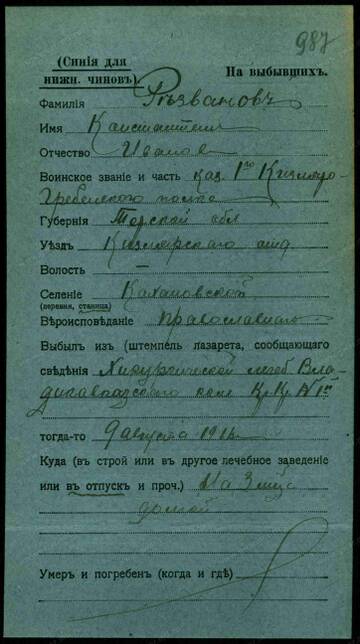 987
(Синія для
нижн. чиновъ).
На выбывшихъ.
Фамилія Рѣзвановъ
Имя Константинъ
Отчество Иванов
Воинское званіе и часть каз. 1го Кизляро-
Гребенского полка
Губернія Терской обл
Уѣздъ Кизлярскаго отд
Волость —
Селеніе Кахановской
(деревня, станица)
Вѣроисповѣданіе православн
Выбылъ изъ (штемпель лазарета, сообщающаго
свѣдѣнія Хирургической лечеб Вла-
дикавказскаго Кр. Кр. №1й
тогда-то 9 августа 191
Куда (въ строй или въ другое лечебное заведеніе
или въ отпускъ и проч.) На 3 мѣс
домой
Умеръ и погребенъ (когда и гдѣ)